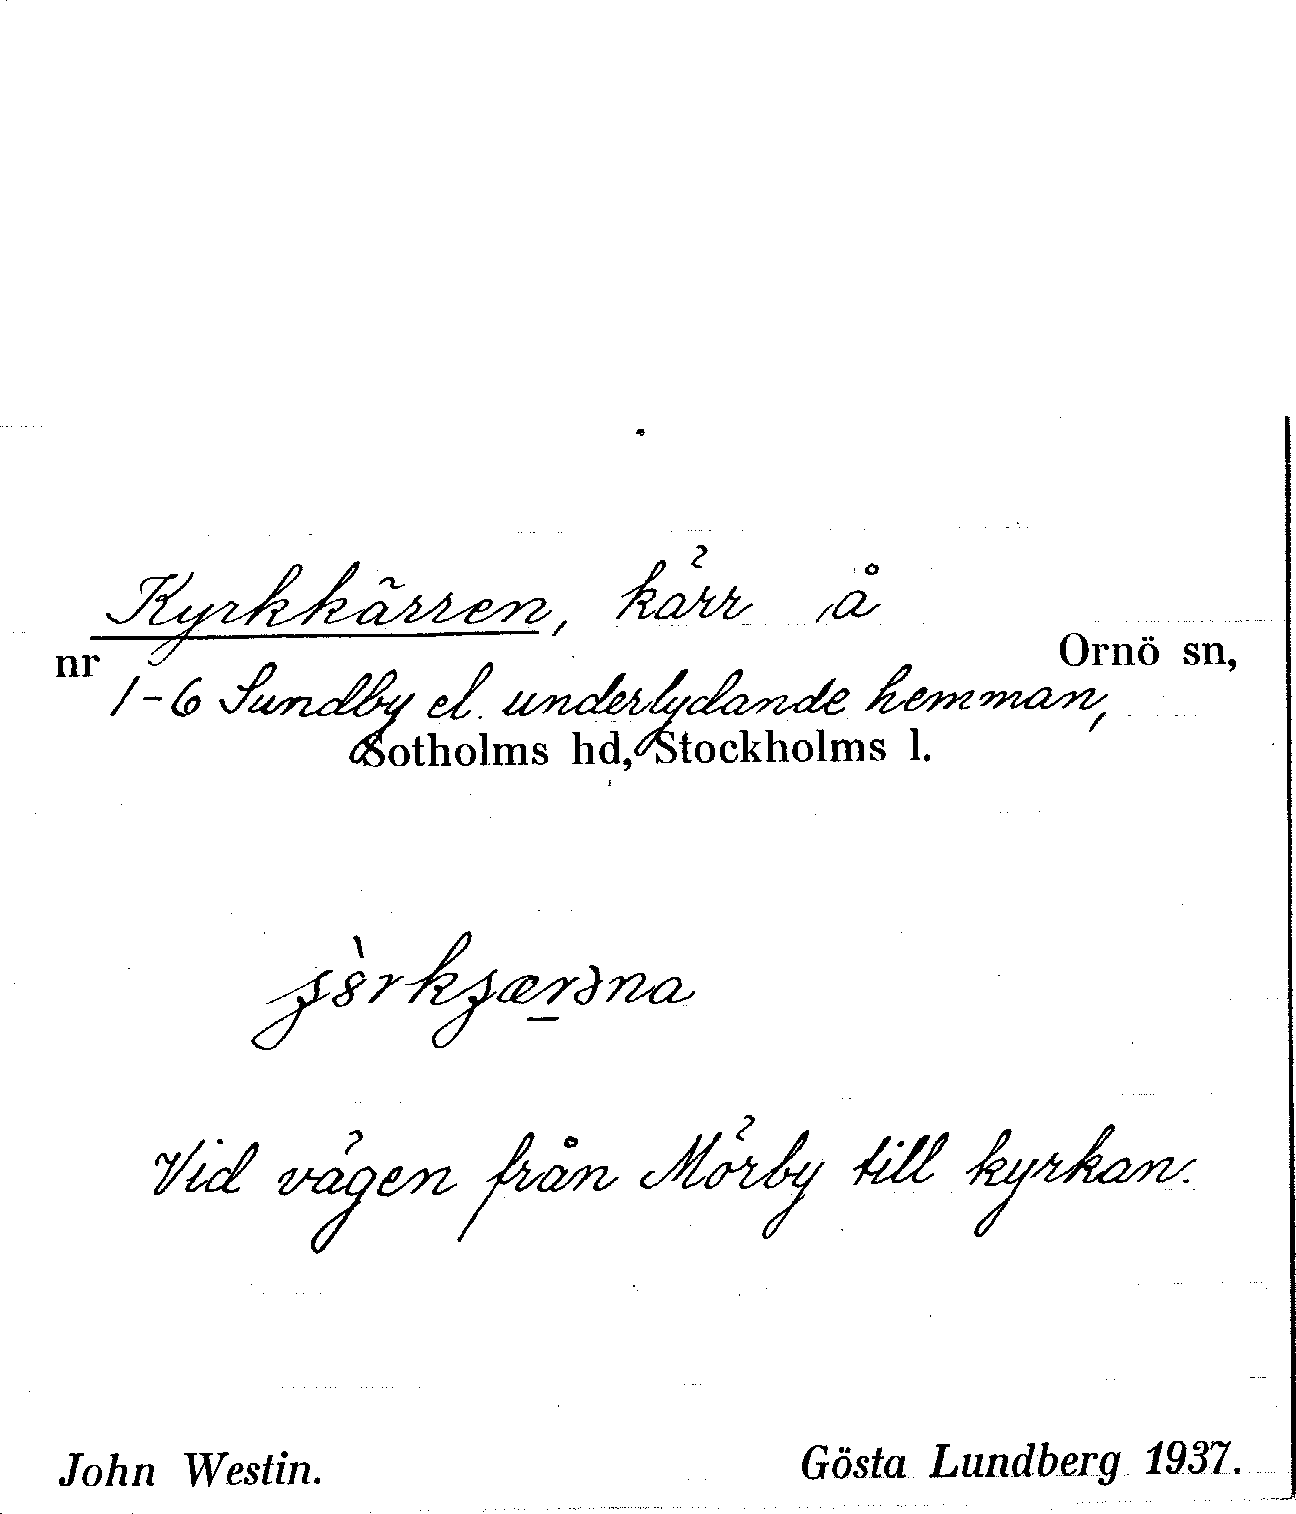 Kyrkkärren, kärr å
nr Ornö sn,
1-6 Sundby el. underlydande hemman,
Sotholms hd, Stockholms l.
Vid vägen från Mörby till kyrkan.
John Westin. Gösta Lundberg 1937.